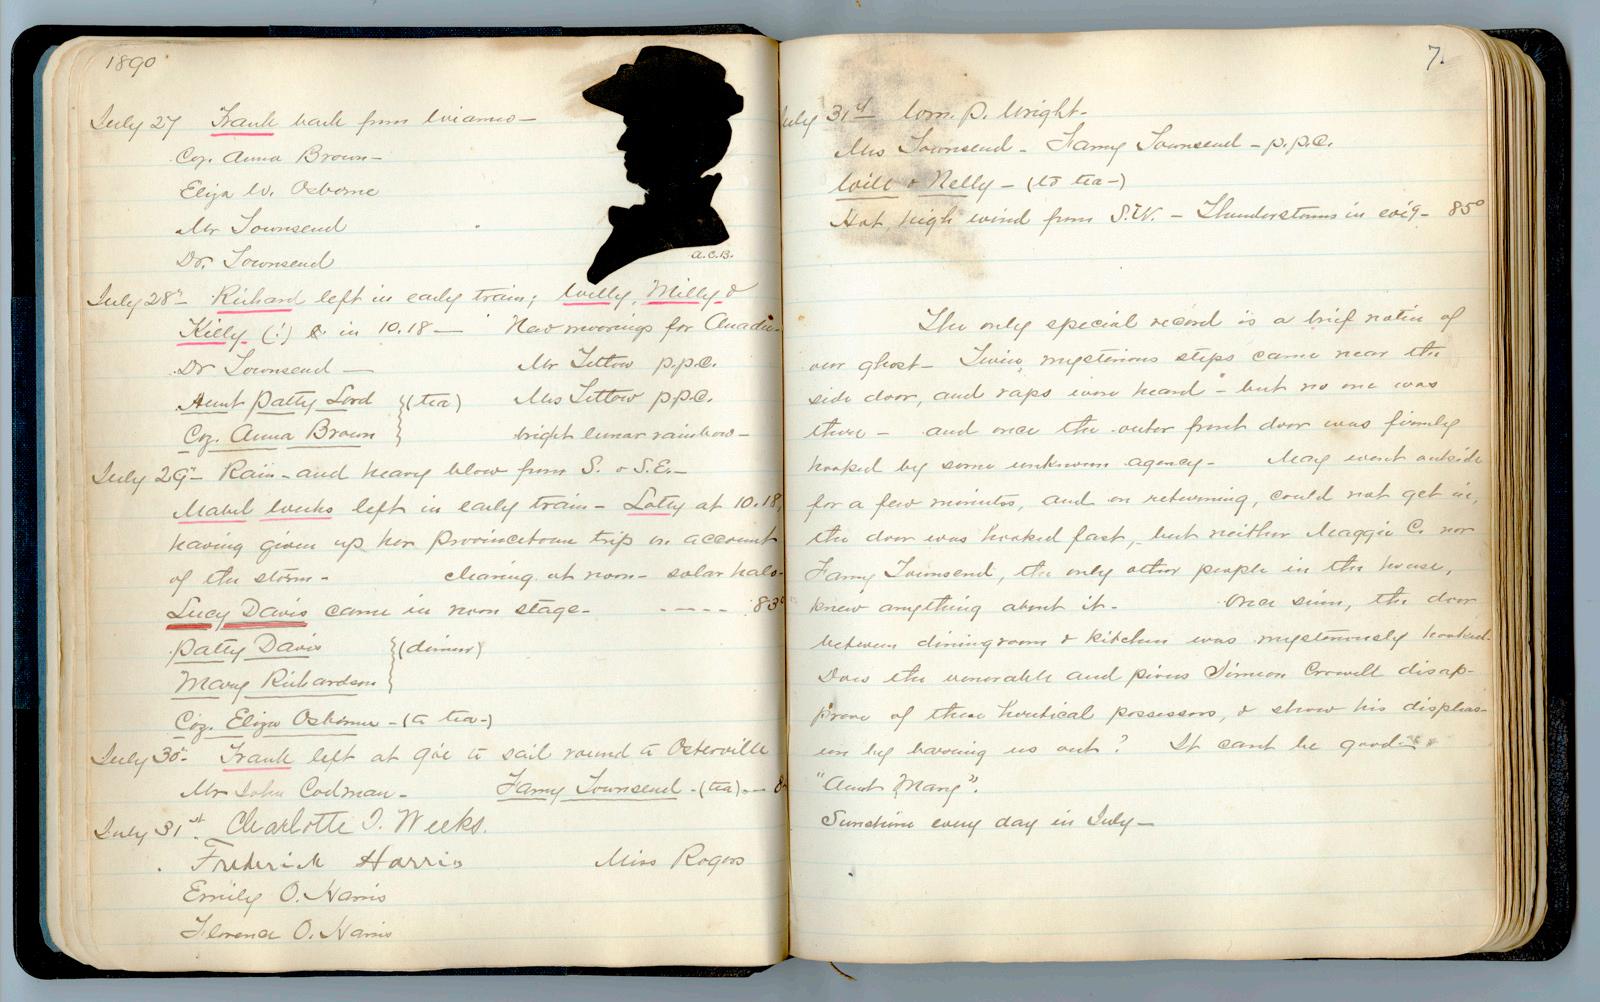 1890
July 27 Frank back from Wianno—
Coz. Anna Brown—
Eliza W. Osborne
Mr Townsend
Dr. Townsend
A.C.B.
July 28th Richard left in early train; Willy, Milly &
Killy (!) & in 10.18 — New moorings for
Dr Townsend — Mr Tettow p.p.c.
Aunt Patty Lord (tea) Mrs Tettow p.p.c.
Coz. Anna Brown bright lunar rainbow—
July 29th Rain - and heavy blow from S. & S.E.—
Mabel Weeks left in early train— Lotty at 10.18,
having given up her Provincetown trip on account
of the storm— clearing at noon— solar halo—
Lucy Davis came in noon stage. - - - - 83°
Patty Davis (dinner)
Mary Richardson
Coz. Eliza Osborne - (to tea-)
July 30th Frank left at to sail round to Osterville
Mr John Codman - Fanny Townsend - (tea) —
July 31st. Charlotte I. Weeks.
Frederick Harris Miss Rogers
Emily O. Harris
Florence O. Harris
7.
July 31st Wm. P. Wright-
Mrs Townsend - Fanny Townsend - p.p.c.
Will & Nelly - (to tea-)
Hot, high wind from S.W. - Thunderstorms in eve'g- 85°
The only special record is a brief notice of
our ghost— Twice, mysterious steps came near the
side door, and raps were heard - but no one was
there — and once the outer front door was firmly
hooked by some unknown agency- May went outside
for a few minutes, and on returning, could not get in,
the door was hooked fast, but neither Maggie C. nor
Fanny Townsend, the only other people in the house,
knew anything about it. Once since, the door
between diningroom & kitchen was mysteriously hooked.
Does the venerable and pious Simeon Crowell disap-
prove of these heretical possessors, & show his displeas-
ure by barring us out? It can't be good
"Aunt Mary".
Sunshine every day in July—